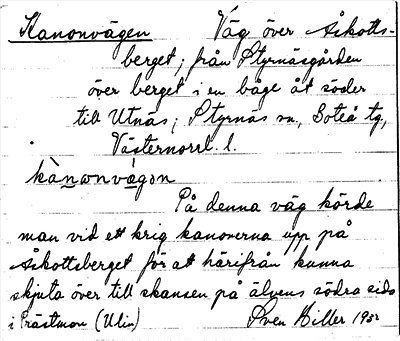 Kanonvägen Väg över Åskotts-
berget; från Styrnäsgården
över berget i en båge åt söder
till Utnäs; Styrnäs sn, Boteå tg,
Västernorrl. l.
kànonvägon
På denna väg körde
man vid ett krig kanonerna upp på
Åskottsberget för att härifrån kunna
skjuta över till skansen på älvens södra sida
i Prästmon (Ulin) Sven Hiller 1932